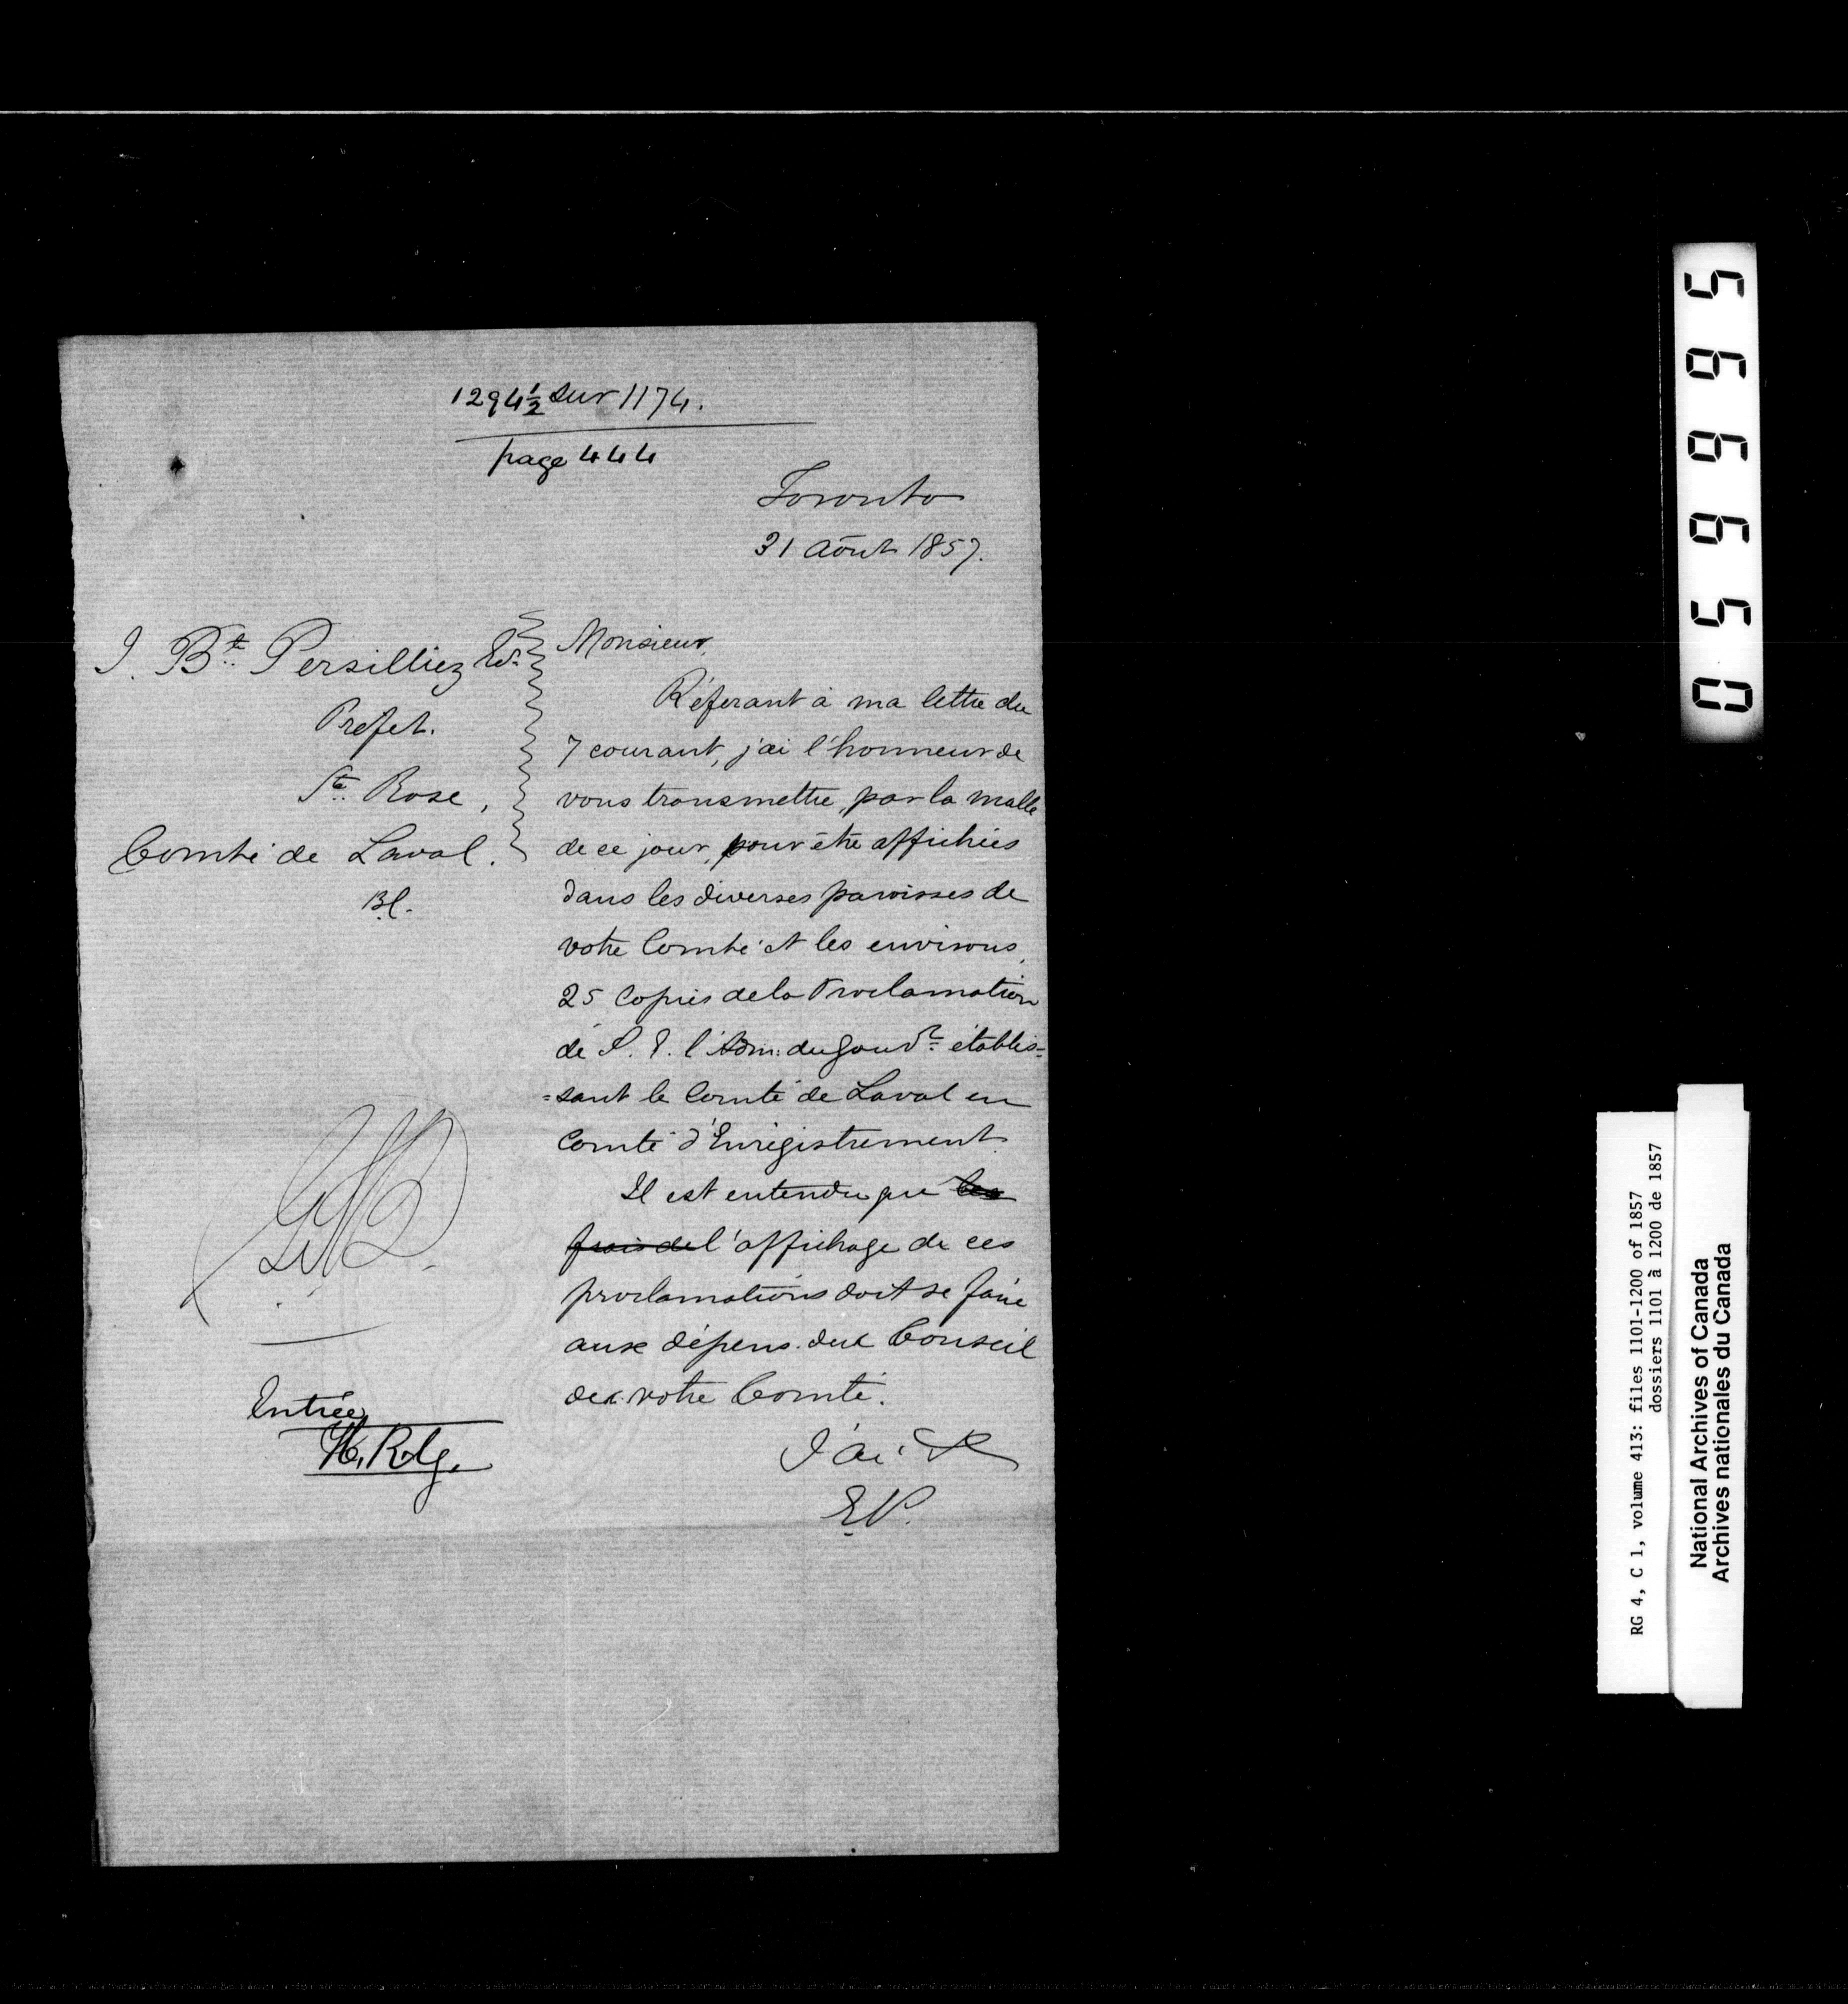 1294½ sur 1174.
page 444
Toronto
31 Aôut 1857.
J. Bte Persilliez
Préfet.
Ste Rose,
Comté de Laval.
B.C.
Monsieur,
Réferant à ma lettre du
7 courant, j'ai l'honneur de
vous transmettre, par la malle
de ce jour, pour être affichées
dans les diverses paroisses de
votre Comté et les environs,
25 Copies de la Proclamation
de S. E. l'Adm: du Gouvt établis=
=sant le Comté de Laval en
Comté d'Enrégistrement.
Il est entendu que les
frais de l'affichage de ces
proclamations doit se faire
aux dépens du Conseil
de votre Comté.
J'ai &
E.P.
Entrée
56650
RG 4, C 1, volume 413: files 1101-1200 of 1857
dossiers 1101 à 1200 de 1857
National Archives of Canada
Archives nationales du Canada